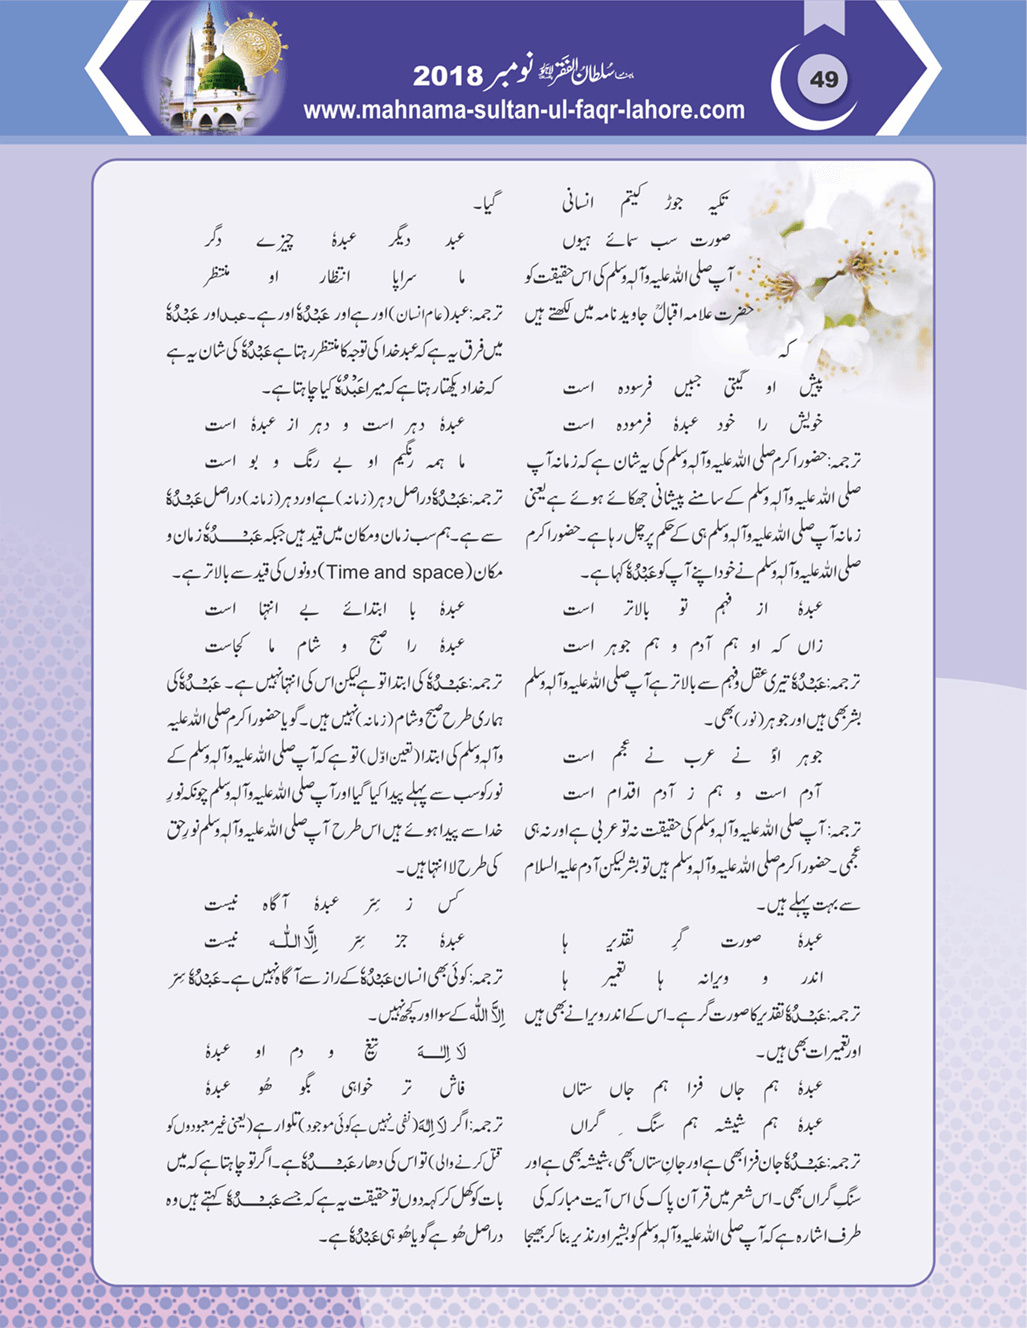 ماہنامہ سلطان الفقر لاہور نومبر 2018
49
www.mahnama-sultan-ul-faqr-lahore.com
تکیہ جوڑ کیتم انسانی
صورت سب سمائے ہیوں
آپ صلی اللہ علیہ وآلہٖ وسلم کی اس حقیقت کو
حضرت علامہ اقبالؒ جاوید نامہ میں لکھتے ہیں
کہ
پیش او گیتی جبیں فرسودہ است
خویش را خود عبدہٗ فرمودہ است
ترجمہ: حضور اکرم صلی اللہ علیہ وآلہٖ وسلم کی یہ شان ہے کہ زمانہ آپ
صلی اللہ علیہ وآلہٖ وسلم کے سامنے پیشانی جھکائے ہوئے ہے یعنی
زمانہ آپ صلی اللہ علیہ وآلہٖ وسلم ہی کے حکم پر چل رہا ہے۔ حضور اکرم
صلی اللہ علیہ وآلہٖ وسلم نے خود اپنے آپ کو عَبْدُہٗ کہا ہے۔
عبدہٗ از فہم تو بالاتر است
زاں کہ او ہم آدم و ہم جوہر است
ترجمہ: عَبْدُہٗ تیری عقل و فہم سے بالاتر ہے آپ صلی اللہ علیہ وآلہٖ وسلم
بشر بھی ہیں اور جوہر (نور) بھی۔
جوہر اوؐ نے عرب نے عجم است
آدم است و ہم ز آدم اقدام است
ترجمہ: آپ صلی اللہ علیہ وآلہٖ وسلم کی حقیقت نہ تو عربی ہے اور نہ ہی
عجمی۔ حضور اکرم صلی اللہ علیہ وآلہٖ وسلم ہیں تو بشر لیکن آدم علیہ السلام
سے بہت پہلے ہیں۔
عبدہٗ صورت گرِ تقدیر ہا
اندر و ویرانہ ہا تعمیر ہا
ترجمہ: عَبْدُہٗ تقدیر کا صورت گر ہے۔ اس کے اندر ویرانے بھی ہیں
اور تعمیرات بھی ہیں۔
عبدہٗ ہم جاں فزا ہم جاں ستاں
عبدہٗ ہم شیشہ ہم سنگِ گراں
ترجمہ: عَبْدُہٗ جان فزا بھی ہے اور جانِ ستاں بھی، شیشہ بھی ہے اور
سنگِ گراں بھی۔ اس شعر میں قرآن پاک کی اس آیت مبارکہ کی
طرف اشارہ ہے کہ آپ صلی اللہ علیہ وآلہٖ وسلم کو بشیر اور نذیر بنا کر بھیجا
گیا۔
عبد دیگر عبدہٗ چیزے دگر
ما سراپا انتظار او منتظر
ترجمہ: عبد (عام انسان) اور ہے اور عَبْدُہٗ اور ہے۔ عبد اور عَبْدُہٗ
میں فرق یہ ہے کہ عبد خدا کی توجہ کا منتظر رہتا ہے عَبْدُہٗ کی شان یہ ہے
کہ خدا دیکھتا رہتا ہے کہ میرا عَبْدُہٗ کیا چاہتا ہے۔
عبدہٗ دہر است و دہر از عبدہٗ است
ما ہمہ رنگیم او بے رنگ و بو است
ترجمہ: عَبْدُہٗ دراصل دہر (زمانہ) ہے اور دہر (زمانہ) دراصل عَبْدُہٗ
سے ہے۔ ہم سب زمان و مکان میں قید ہیں جبکہ عَبْدُہٗ زمان و
مکان (Time and space) دونوں کی قید سے بالاتر ہے۔
عبدہٗ با ابتدائے بے انتہا است
عبدہٗ را صبح و شام ما کجاست
ترجمہ: عَبْدُہٗ کی ابتدا تو ہے لیکن اس کی انتہا نہیں ہے۔ عَبْدُہٗ کی
ہماری طرح صبح و شام (زمانہ) نہیں ہیں۔ گویا حضور اکرم صلی اللہ علیہ
وآلہٖ وسلم کی ابتدا (تعین اوّل) تو ہے کہ آپ صلی اللہ علیہ وآلہٖ وسلم کے
نور کو سب سے پہلے پیدا کیا گیا اور آپ صلی اللہ علیہ وآلہٖ وسلم چونکہ نورِ
خدا سے پیدا ہوئے ہیں اس طرح آپ صلی اللہ علیہ وآلہٖ وسلم نورِ حق
کی طرح لا انتہا ہیں۔
کس ز سِرّ عبدہٗ آگاہ نیست
عبدہٗ جز سِرّ اِلَّا اللّٰہ نیست
ترجمہ: کوئی بھی انسان عَبْدُہٗ کے راز سے آگاہ نہیں ہے۔ عَبْدُہٗ سِرّ
اِلَّا اللّٰہ کے سوا اور کچھ نہیں۔
لَا اِلٰہَ تیغ و دم او عبدہٗ
فاش تر خواہی بگو ھُو عبدہٗ
ترجمہ: اگر لَا اِلٰہَ (نفی۔ نہیں ہے کوئی موجود) تلوار ہے (یعنی غیر معبودوں کو
قتل کرنے والی) تو اس کی دھار عَبْدُہٗ ہے۔ اگر تو چاہتا ہے کہ میں
بات کو کھل کر کہہ دوں تو حقیقت یہ ہے کہ جسے عَبْدُہٗ کہتے ہیں وہ
دراصل ھُو ہے گویا ھُو ہی عَبْدُہٗ ہے۔